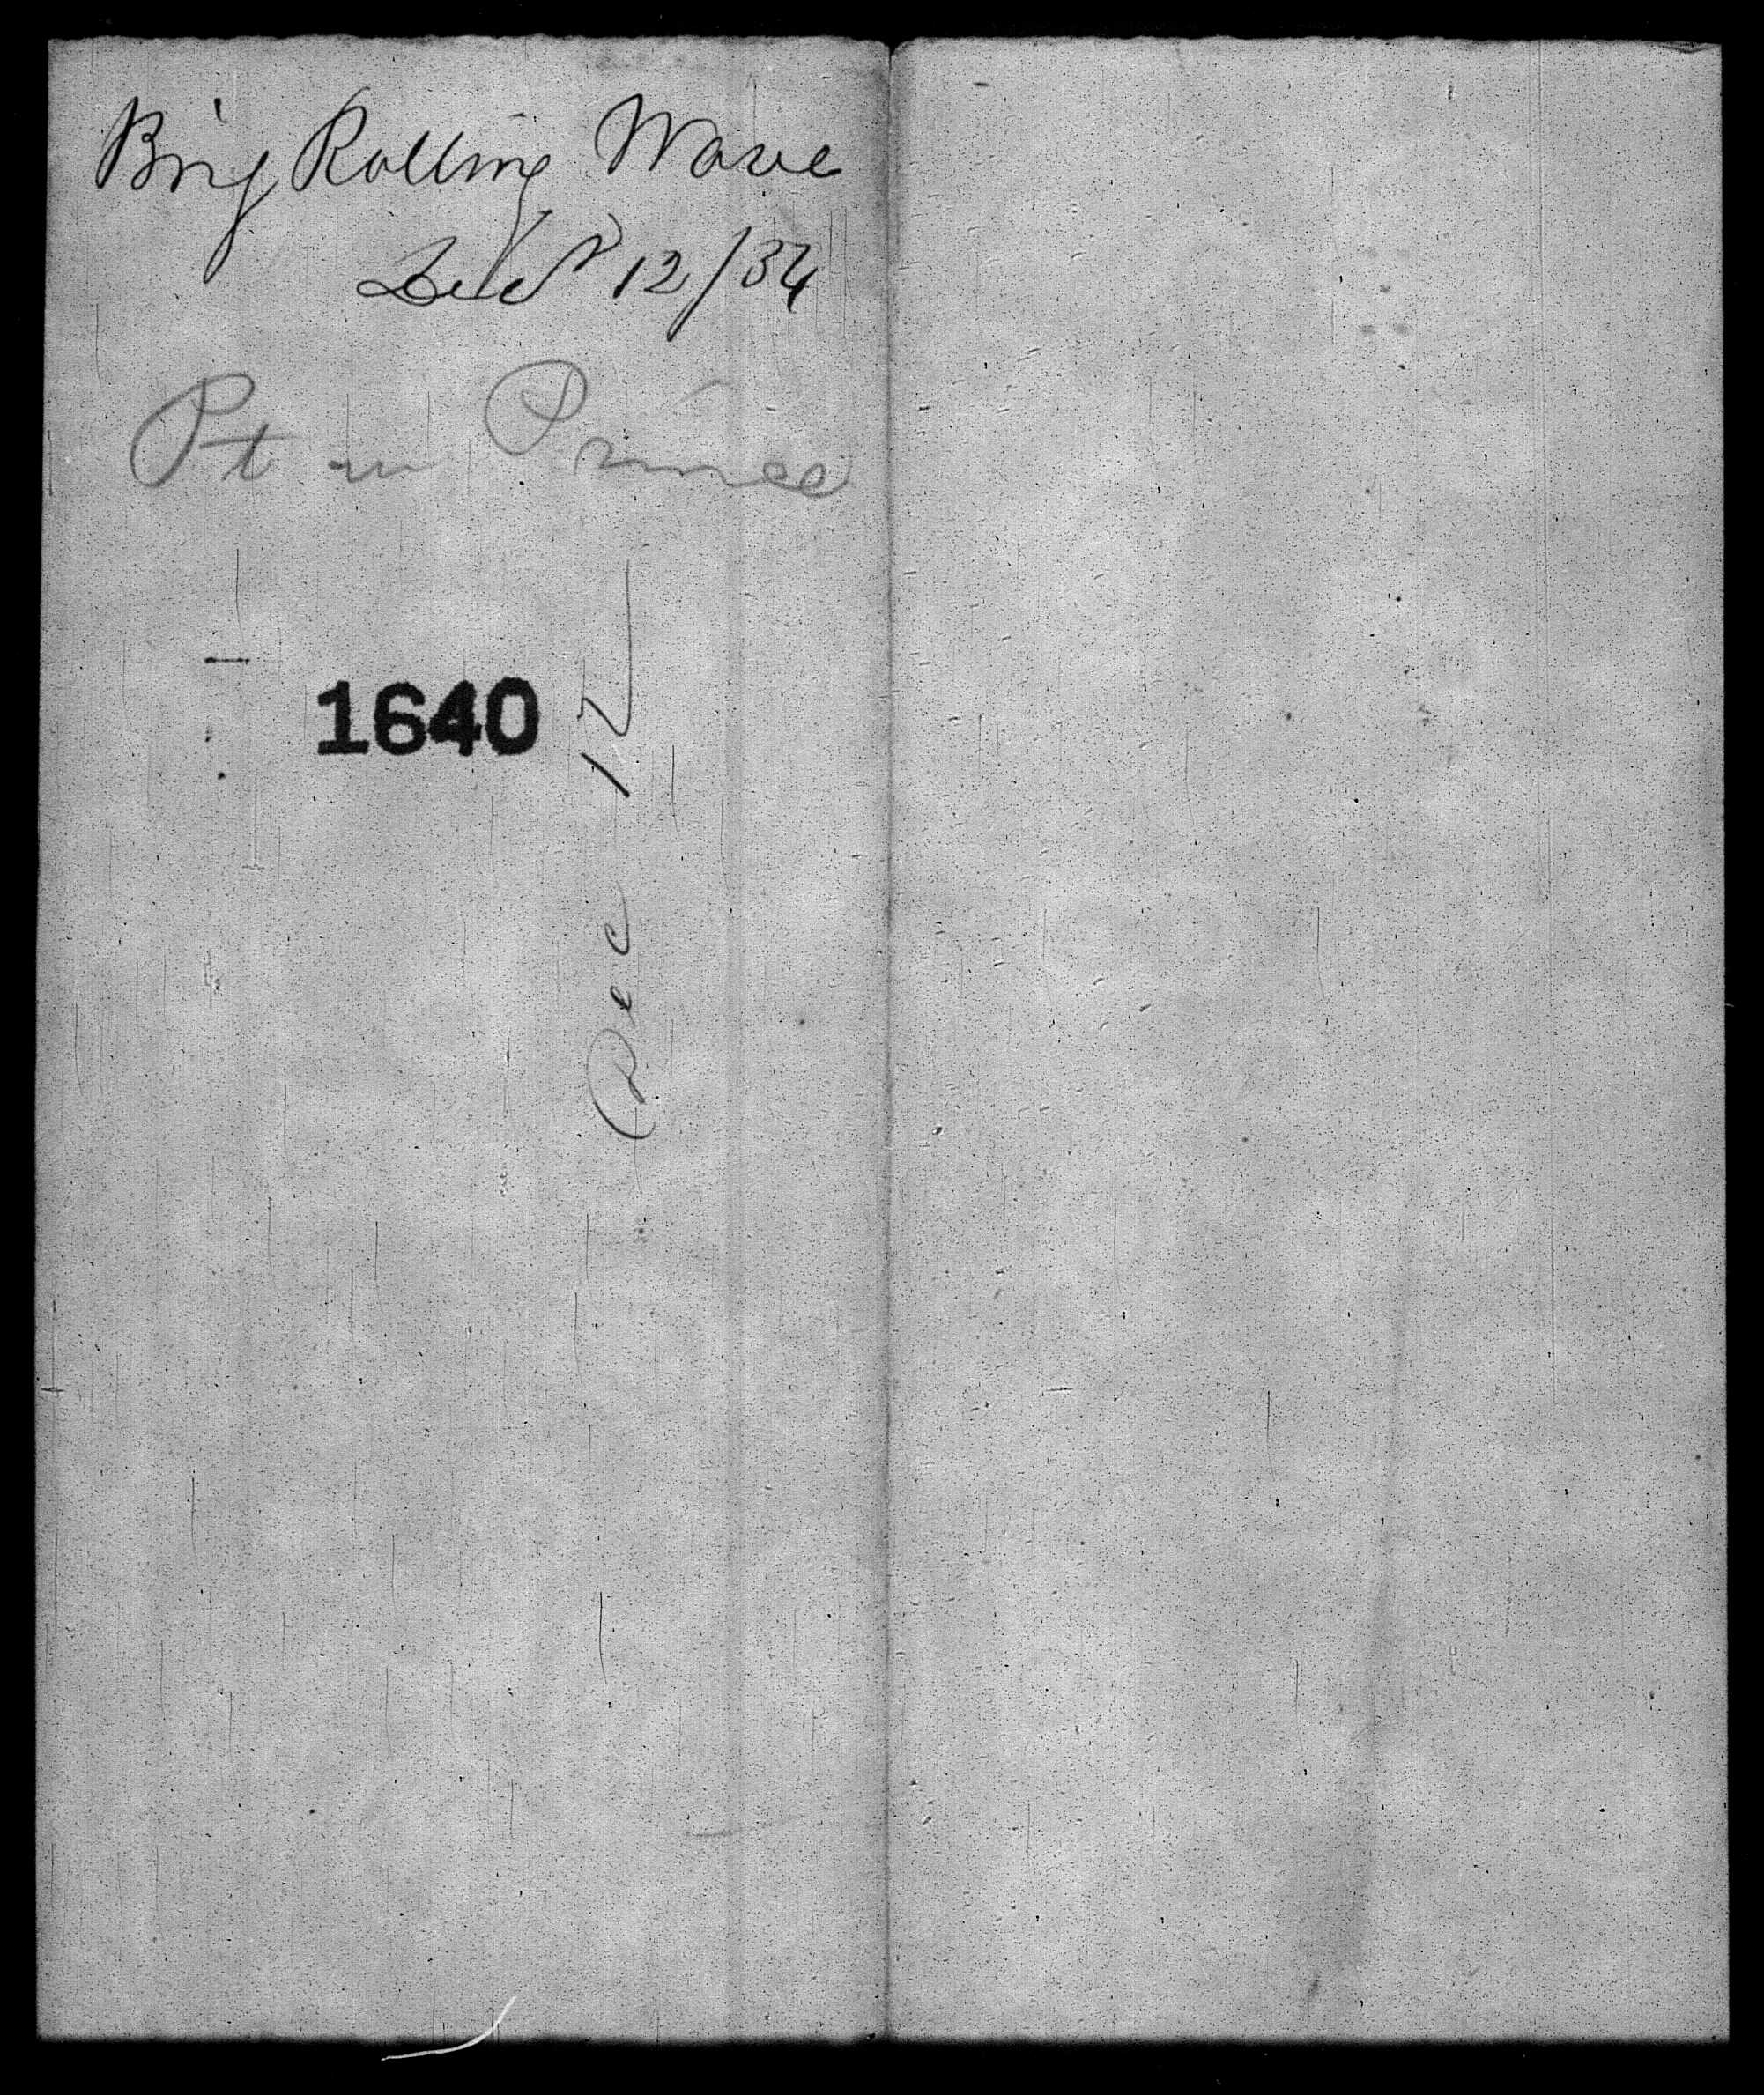 Brig Rolling Wave
Decr 12/34
Pt au Prince
1640
Dec 12